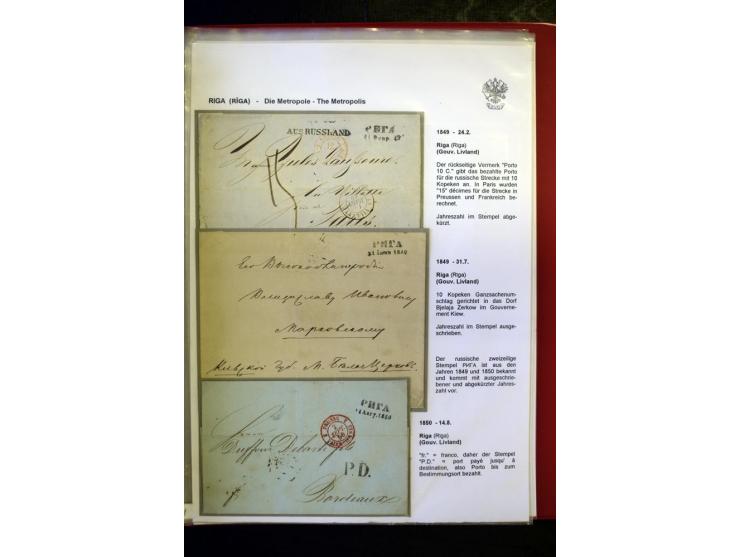 RIGA (RĪGA) - Die Metropole - The Metropolis
AUS RUSSLAND
РИГА
1849 - 24.2.
Riga (Riga)
(Gouv. Livland)
Der rückseitige Vermerk "Porto
10 C." gibt das bezahlte Porto
für die russische Strecke mit 10
Kopeken an. In Paris wurden
"15" décimes für die Strecke in
Preussen und Frankreich be-
rechnet.
Jahreszahl im Stempel abge-
kürzt.
15
Paris
РИГА
1849 - 31.7.
Riga (Riga)
(Gouv. Livland)
10 Kopeken Ganzsachenum-
schlag gerichtet in das Dorf
Bjelaja Zerkow im Gouverne-
ment Kiew.
Jahreszahl im Stempel ausge-
schrieben.
Его Высокоблагородію
Ивановичу
Марковскому
Кіевской Губ. М. Бѣлая Церковь
Der russische zweizeilige
Stempel РИГА ist aus den
Jahren 1849 und 1850 bekannt
und kommt mit ausgeschrie-
bener und abgekürzter Jahres-
zahl vor.
РИГА
P.D.
Bordeaux
1850 - 14.8.
Riga (Riga)
(Gouv. Livland)
"fr." = franco, daher der Stempel
"P.D." = port payé jusqu' á
destination, also Porto bis zum
Bestimmungsort bezahlt.